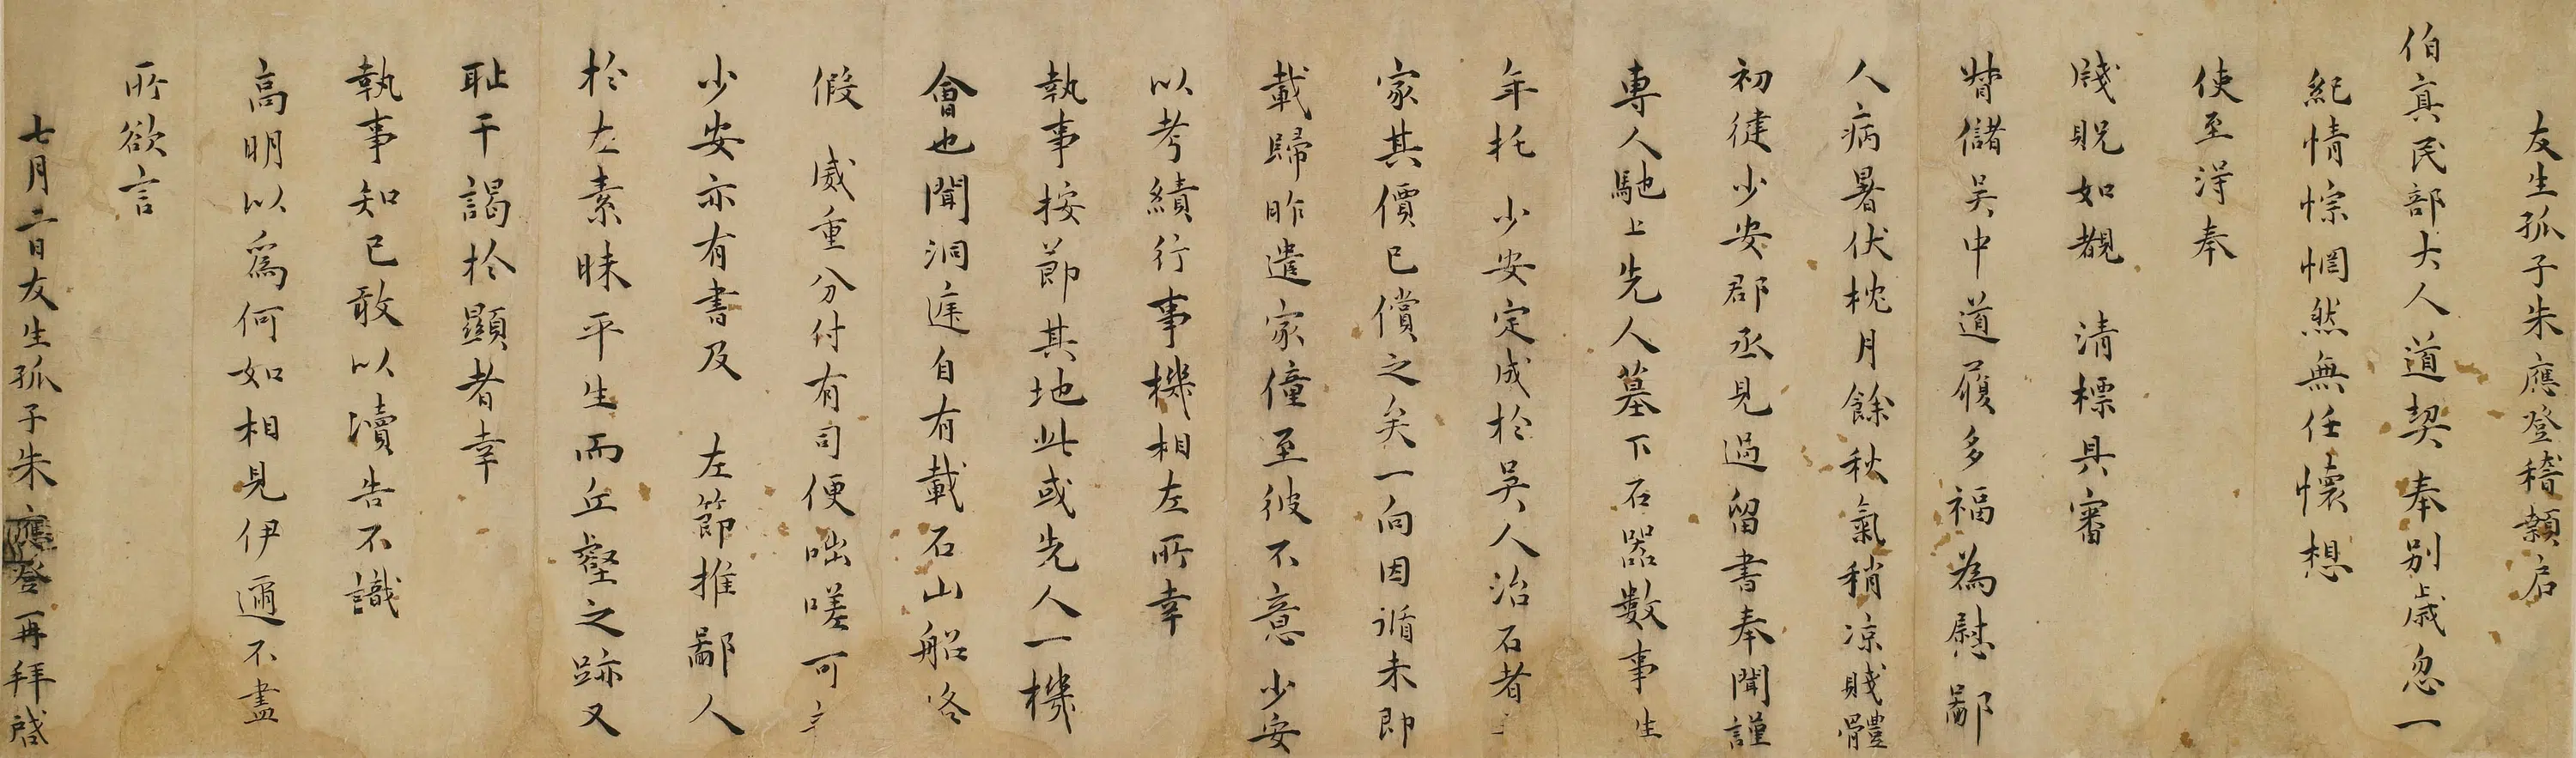 友生孤子朱應登稽顙启
伯真民部大人道契奉别歲忽一
紀情悰惘然無任懷想
使至淂奉
牋貺如覩 清標具審
督儲吴中道履多福為慰鄙
人病暑伏枕月餘秋氣稍凉賤體
初健少安郡丞見過留書奉聞謹
專人馳上先人墓下石器數事
年托 少安定成於吴人治石者
家其價已償之矣一向因循未即
載歸昨遣家僮至彼不意少安
以考績行事機相左所幸
執事按莭其地此或先人一機
會也聞洞庭自有載石山船
假 威重分付有司便咄嗟可
少安亦有書及 左節推鄙人
於左素昧平生而丘壑之跡又
耻干謁於顯者幸
執事知已敢以瀆告不識
高明以爲何如相見伊邇不盡
所欲言
七月二日友生孤子朱應登再拜啓